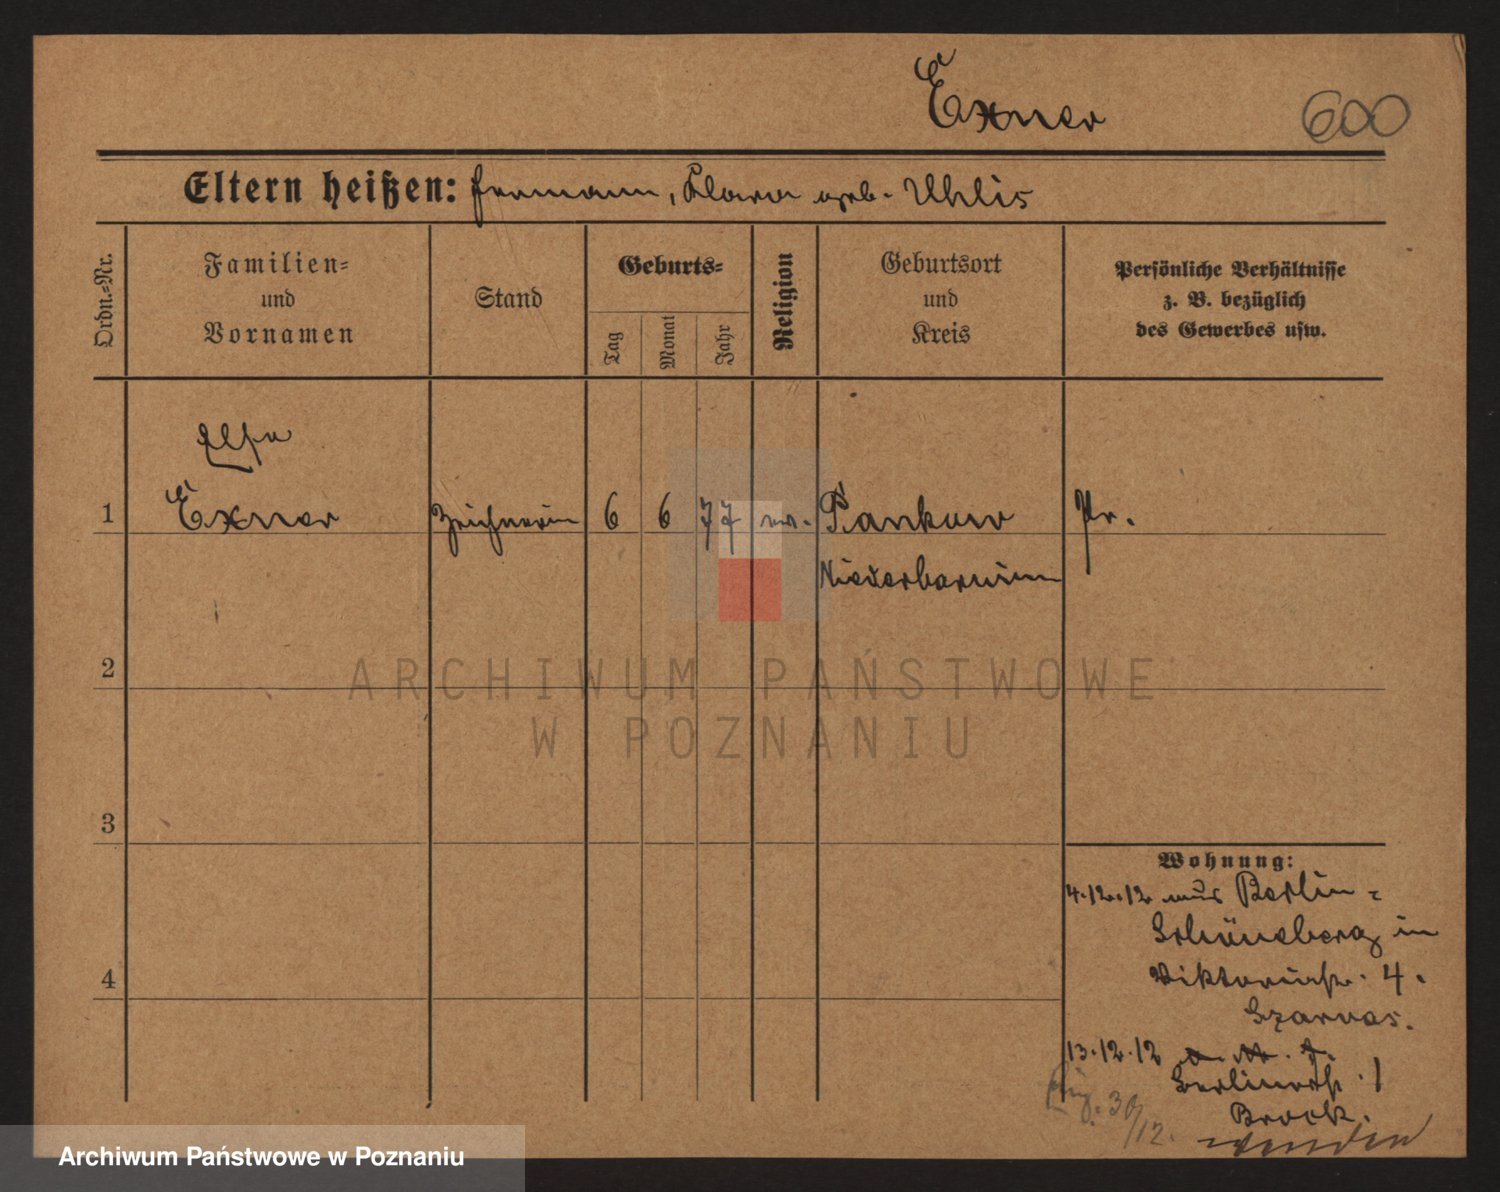 Exner
600
Eltern heißen: Hermann, Klara geb. Uhlis
Ordn.-Nr.
Familien-
und
Vornamen
Stand
Geburts-
Tag
Monat
Jahr
Religion
Geburtsort
und
Kreis
Persönliche Verhältnisse
z. B. bezüglich
des Gewerbes usw.
Elsa
1 Exner Zeichnerin 6 6 77 ev. Pankow Pr.
Niederbarnim
2
3
4
Wohnung:
4.12.12 aus Berlin-
Schöneberg in
Viktoriastr. 4.
Szarvas.
13.12.12
Berlinerstr. 1
Brock.
30/12.
wenden
ARCHIWUM PAŃSTWOWE
W POZNANIU
Archiwum Państwowe w Poznaniu